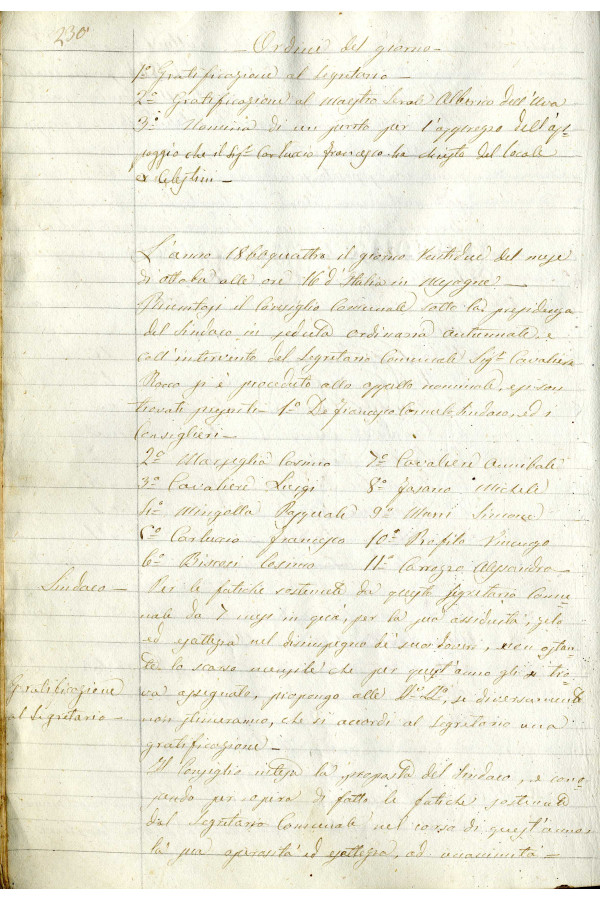 230
Ordine del giorno -
1º Gratificazione al Segretario -
2º Gratificazione al Maestro Serale Albino dell'Uva
3º Nomina di un perito per l'apprezzo dell'ap-
poggio che il Sigr Carluccio Francesco ha chiesto del locale
ex Celestini -
L'anno 1860quattro il giorno Ventidue del mese
di ottobre alle ore 16 d'Italia in Mesagne -
Riunitosi il Consiglio Comunale sotto la presidenza
del Sindaco in seduta ordinaria autunnale, e
coll'intervento del Segretario Comunale Sigr Cavaliere
Rocco si è proceduto allo appello nominale, e si son
trovati presenti - 1º De Francesco Cornelio Sindaco, ed i
Consiglieri -
2º Marseglia Cosimo 7º Cavalieri Annibale
3º Cavalieri Luigi 8º Fasano Michele
4º Mingolla Pasquale 9º Marri Simone
5º Carluccio Francesco 10º Profilo Vincenzo
6º Biscosi Cosimo 11º Carrozzo Alessandro -
Sindaco - Per le fatiche sostenute da questo Segretario Comu-
nale da 7 mesi in quà, per la sua assiduità, zelo
ed esattezza nel disimpegno de' suoi doveri, non ostan-
te lo scarso mensile che per quest'anno gli si tro-
Gratificazione al Segretario - va assegnato, propongo alle , se diversamente
non stimeranno, che si accordi al Segretario una
gratificazione -
Il Consiglio intesa la proposta del Sindaco, e cono-
scendo per opera di fatto le fatiche sostenute
dal Segretario Comunale nel corso di quest'anno
la sua operosità ed esattezza, ad unanimità -